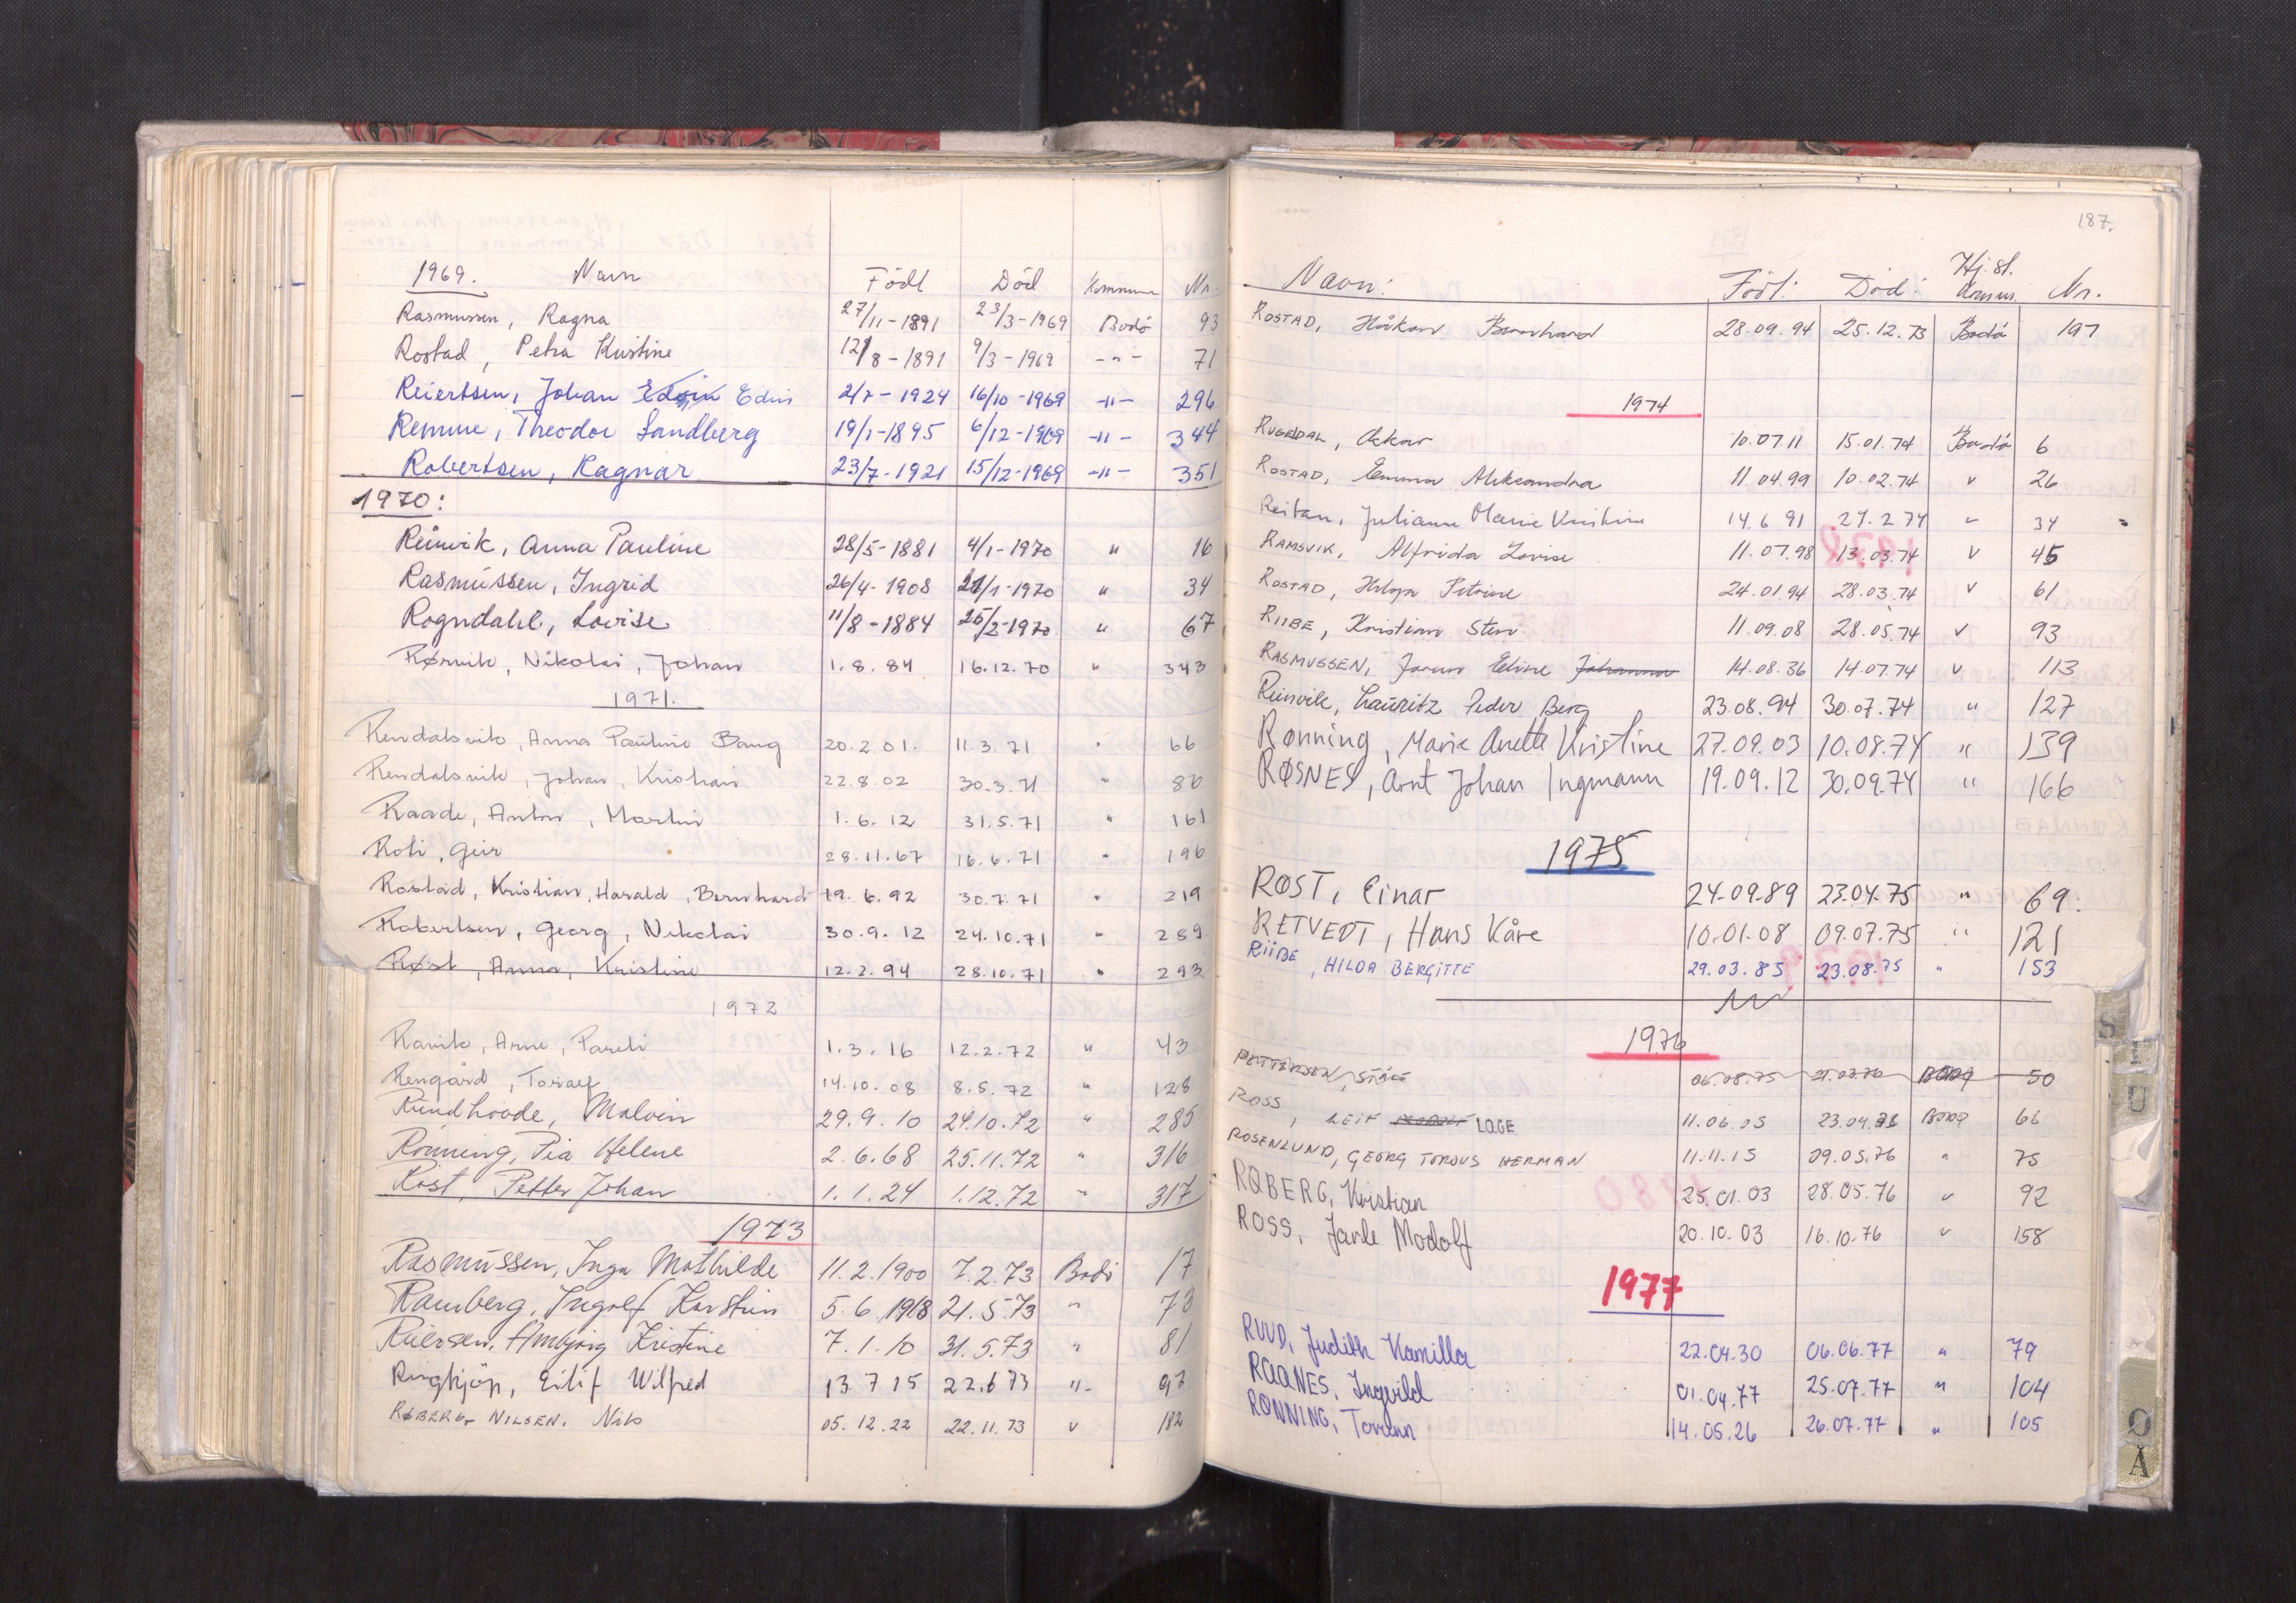 1969. Navn Född Död Kommune Nr.
Rasmussen, Ragna 27/11-1891 23/3-1969 Bodö 93
Rostad, Petra Kristine 12/8-1891 9/3-1969 -"- 71
Reiertsen, Johan Edvin Edin 2/7-1924 16/10-1969 -"- 296
Remme, Theodor Sandberg 19/1-1895 6/12-1969 -"- 344
Robertsen, Ragnar 23/7-1921 15/12-1969 -"- 351
1970:
Reinvik, Anna Pauline 28/5-1881 4/1-1970 " 16
Rasmussen, Ingrid 26/4-1908 21/1-1970 " 34
Rogndahl, Lovise 11/8-1884 25/2-1970 " 67
Rørvik, Nikolai, Johan 1.8.84 16.12.70 " 343
1971.
Rendalsvik, Anna Pauline Bang 20.2.01. 11.3.71 " 66
Rendalsvik, Johan, Kristian 22.8.02 30.3.71 " 86
Raade, Anton, Martin 1.6.12 31.5.71 " 161
Roti, Geir 28.11.67 16.6.71 " 196
Rostad, Kristian, Harald, Bernhard 19.6.92 30.7.71 " 219
Robertsen, Georg, Nikolai 30.9.12 24.10.71 " 289
Røst, Anna, Kristine 12.2.94 28.10.71 " 293
1972
Ravik, Arne, Pareli 1.3.16 12.2.72 " 43
Rengård, Toralf 14.10.08 8.5.72 " 128
Rundhovde, Malvin 29.9.10 24.10.72 " 285
Rönning, Pia Helene 2.6.68 25.11.72 " 316
Röst, Petter Johan 1.1.24 1.12.72 " 317
1973
Rasmussen, Inga Mathilde 11.2.1900 7.2.73 Bodö 17
Ramberg, Ingolf Karstein 5.6.1918 21.5.73 " 73
Reiersen, Ambjørg Kristine 7.1.10 31.5.73 " 81
Ringkjöp, Eilif Wilfred 13.7.15 22.6.73 " 97
RØBERG NILSEN, Nils 05.12.22 22.11.73 v 182
187.
Navn: Född: Död: Hj.st. Komm. Nr.
ROSTAD, Håkon Bernhard 28.09.94 25.12.73 Bodö 197
1974
RUGELDAL, Oskar 10.07.11 15.01.74 Bodö 6
ROSTAD, Emma Aleksandra 11.04.99 10.02.74 v 26
Reitan, Juliane Marie Kristine 14.6 91 27.2 74 " 34
RAMSVIK, Alfrida Lovise 11.07.98 13.03.74 v 45
ROSTAD, Helga Petrine 24.01.94 28.03.74 v 61
RIIBE, Kristian Sten 11.09.08 28.05.74 v 93
RASMUSSEN, Jorun Eline Johanna 14.08.36 14.07.74 v 113
Reinvik, Lauritz Peder Berg 23.08.94 30.07.74 " 127
Rønning, Marie Anette Kristine 27.09.03 10.08.74 " 139
RØSNES, Arnt Johan Ingmann 19.09.12 30.09.74 " 166
1975
RØST, Einar 24.09.89 23.04.75 " 69.
RETVEDT, Hans Kåre 10.01.08 09.07.75 " 121
RIIBE, HILDA BERGITTE 29.03.85 23.08.75 " 153
1976
PETTERSEN, STÅLE 06.08.75 21.03.76 BODØ 50
ROSS, LEIF LOGE 11.06.05 23.04.76 BODØ 66
ROSENLUND, GEORG TORDUS HERMAN 11.11.15 09.05.76 " 75
RØBERG, Kristian 25.01.03 28.05.76 v 92
ROSS, Jarle Modolf 20.10.03 16.10.76 v 158
1977
RUUD, Judith Kamilla 22.04.30 06.06.77 " 79
RAANES, Ingvild 01.04.77 25.07.77 " 104
RØNNING, Torunn 14.05.26 26.07.77 " 105
S
T
U
Ø
Å